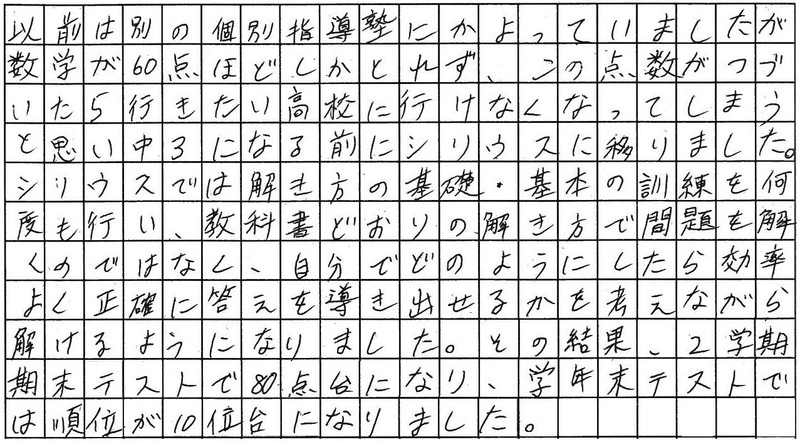 以前は別の個別指導塾にかよっていましたが
数学が60点ほどしかとれず、この点数がつづ
いたら行きたい高校に行けなくなってしまう
と思い中3になる前にシリウスに移りました。
シリウスでは解き方の基礎・基本の訓練を何
度も行い、教科書どおりの解き方で問題を解
くのではなく、自分でどのようにしたら効率
よく正確に答えを導き出せるかを考えながら
解けるようになりました。その結果、2学期
期末テストで80点台になり、学年末テストで
は順位が10位台になりました。